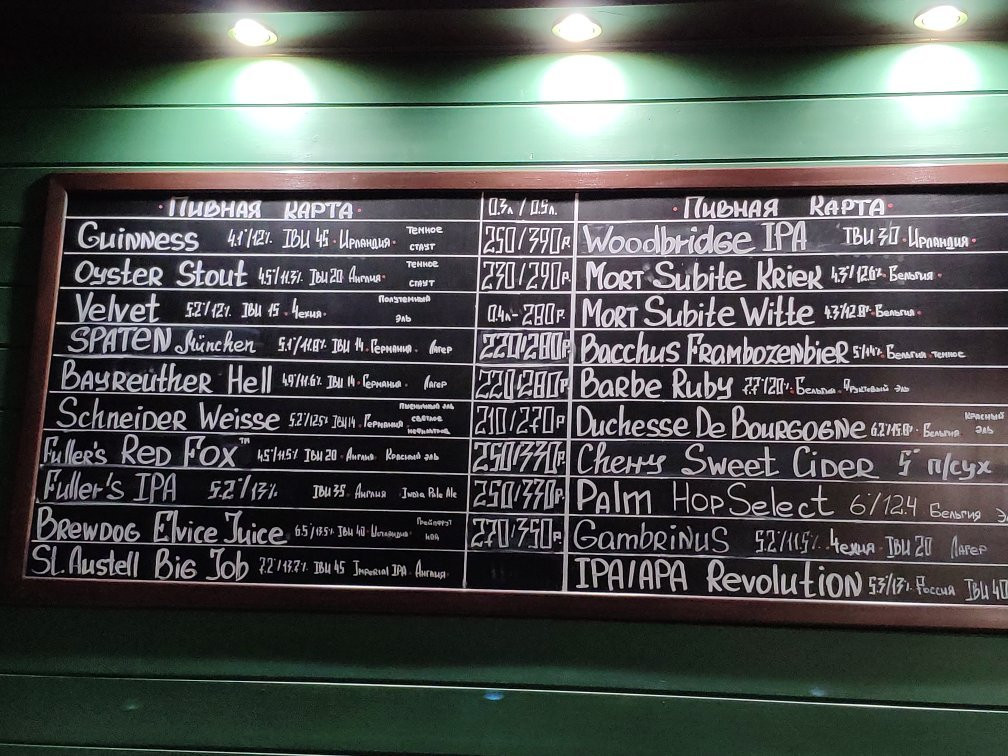 ПИВНАЯ КАРТА 0.3л / 0.5л.
Guinness 4.1°/12% IBU 45 · Ирландия · ТЕМНОЕ СТАУТ 250/390р.
Oyster Stout 4.5°/11.3% IBU 20 Англия · ТЕМНОЕ СТАУТ 230/290р.
Velvet 5.2°/12% IBU 15 · Чехия · Полутемный эль 0.4л - 280р.
SPATEN München 5.1°/11.8% IBU 14 · Германия · Лагер 220/280р.
Bayreuther Hell 4.9°/11.6% IBU 14 · Германия · Лагер 220/280р.
Schneider Weisse 5.2°/12.5% IBU 14 · Германия Пшеничный эль светлое 210/270р.
Fuller's Red Fox™ 4.5°/11.5% IBU 20 · Англия · Красный эль 250/330р.
Fuller's IPA 5.2°/13% IBU 35 · Англия India Pale Ale 250/330р.
Brewdog Elvice Juice 6.5°/13.5% IBU 40 · 270/350р.
St. Austell Big Job 7.2°/13.7% IBU 45 Imperial IPA · Англия ·
ПИВНАЯ КАРТА
Woodbridge IPA IBU 30 · Ирландия ·
Mort Subite Kriek 4.3°/12.6% · Бельгия ·
Mort Subite Witte 4.3°/12.8% · Бельгия ·
Bacchus Frambozenbier 5°/14% · Бельгия · темное
Barbe Ruby 7.7°/20% · Бельгия · Фруктовый эль
Duchesse De Bourgogne 6.2°/15.8% · Бельгия КРАСНЫЙ ЭЛЬ
Cherry Sweet Cider 5° п/сух
Palm Hop Select 6°/12.4 Бельгия
Gambrinus 5.2°/11.5% · Чехия · IBU 20 Лагер
IPA/APA Revolution 5.3°/13% Россия IBU 40